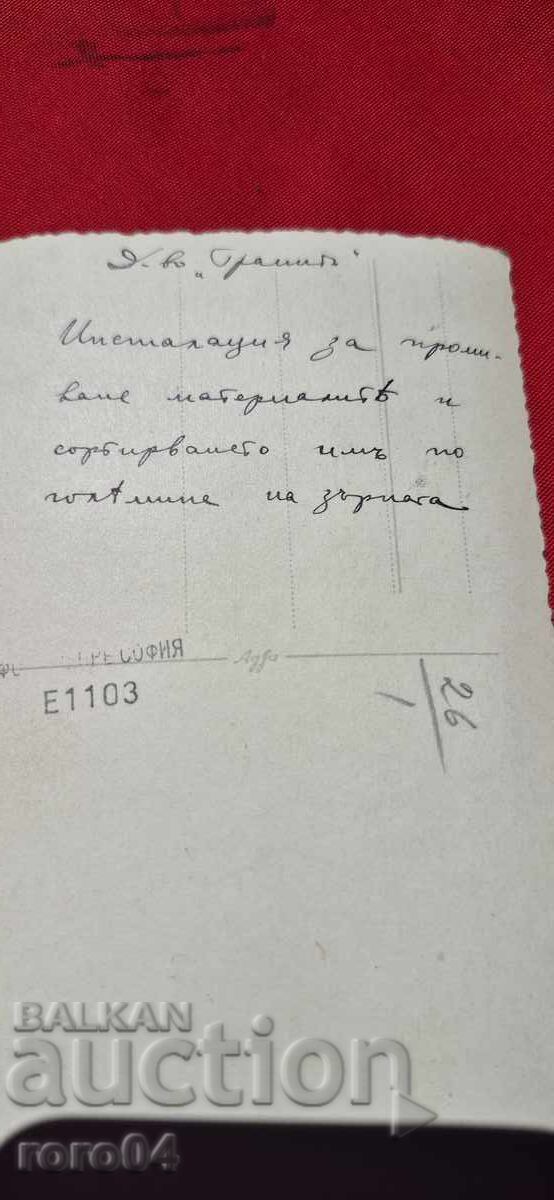 Д-во „Гранитъ"
Инсталация за проми-
ване материалитѣ и
сортирването имъ по
голѣмине на зърната
СОФИЯ
Agfa
Е1103
26
1
BALKAN
auction
roro04